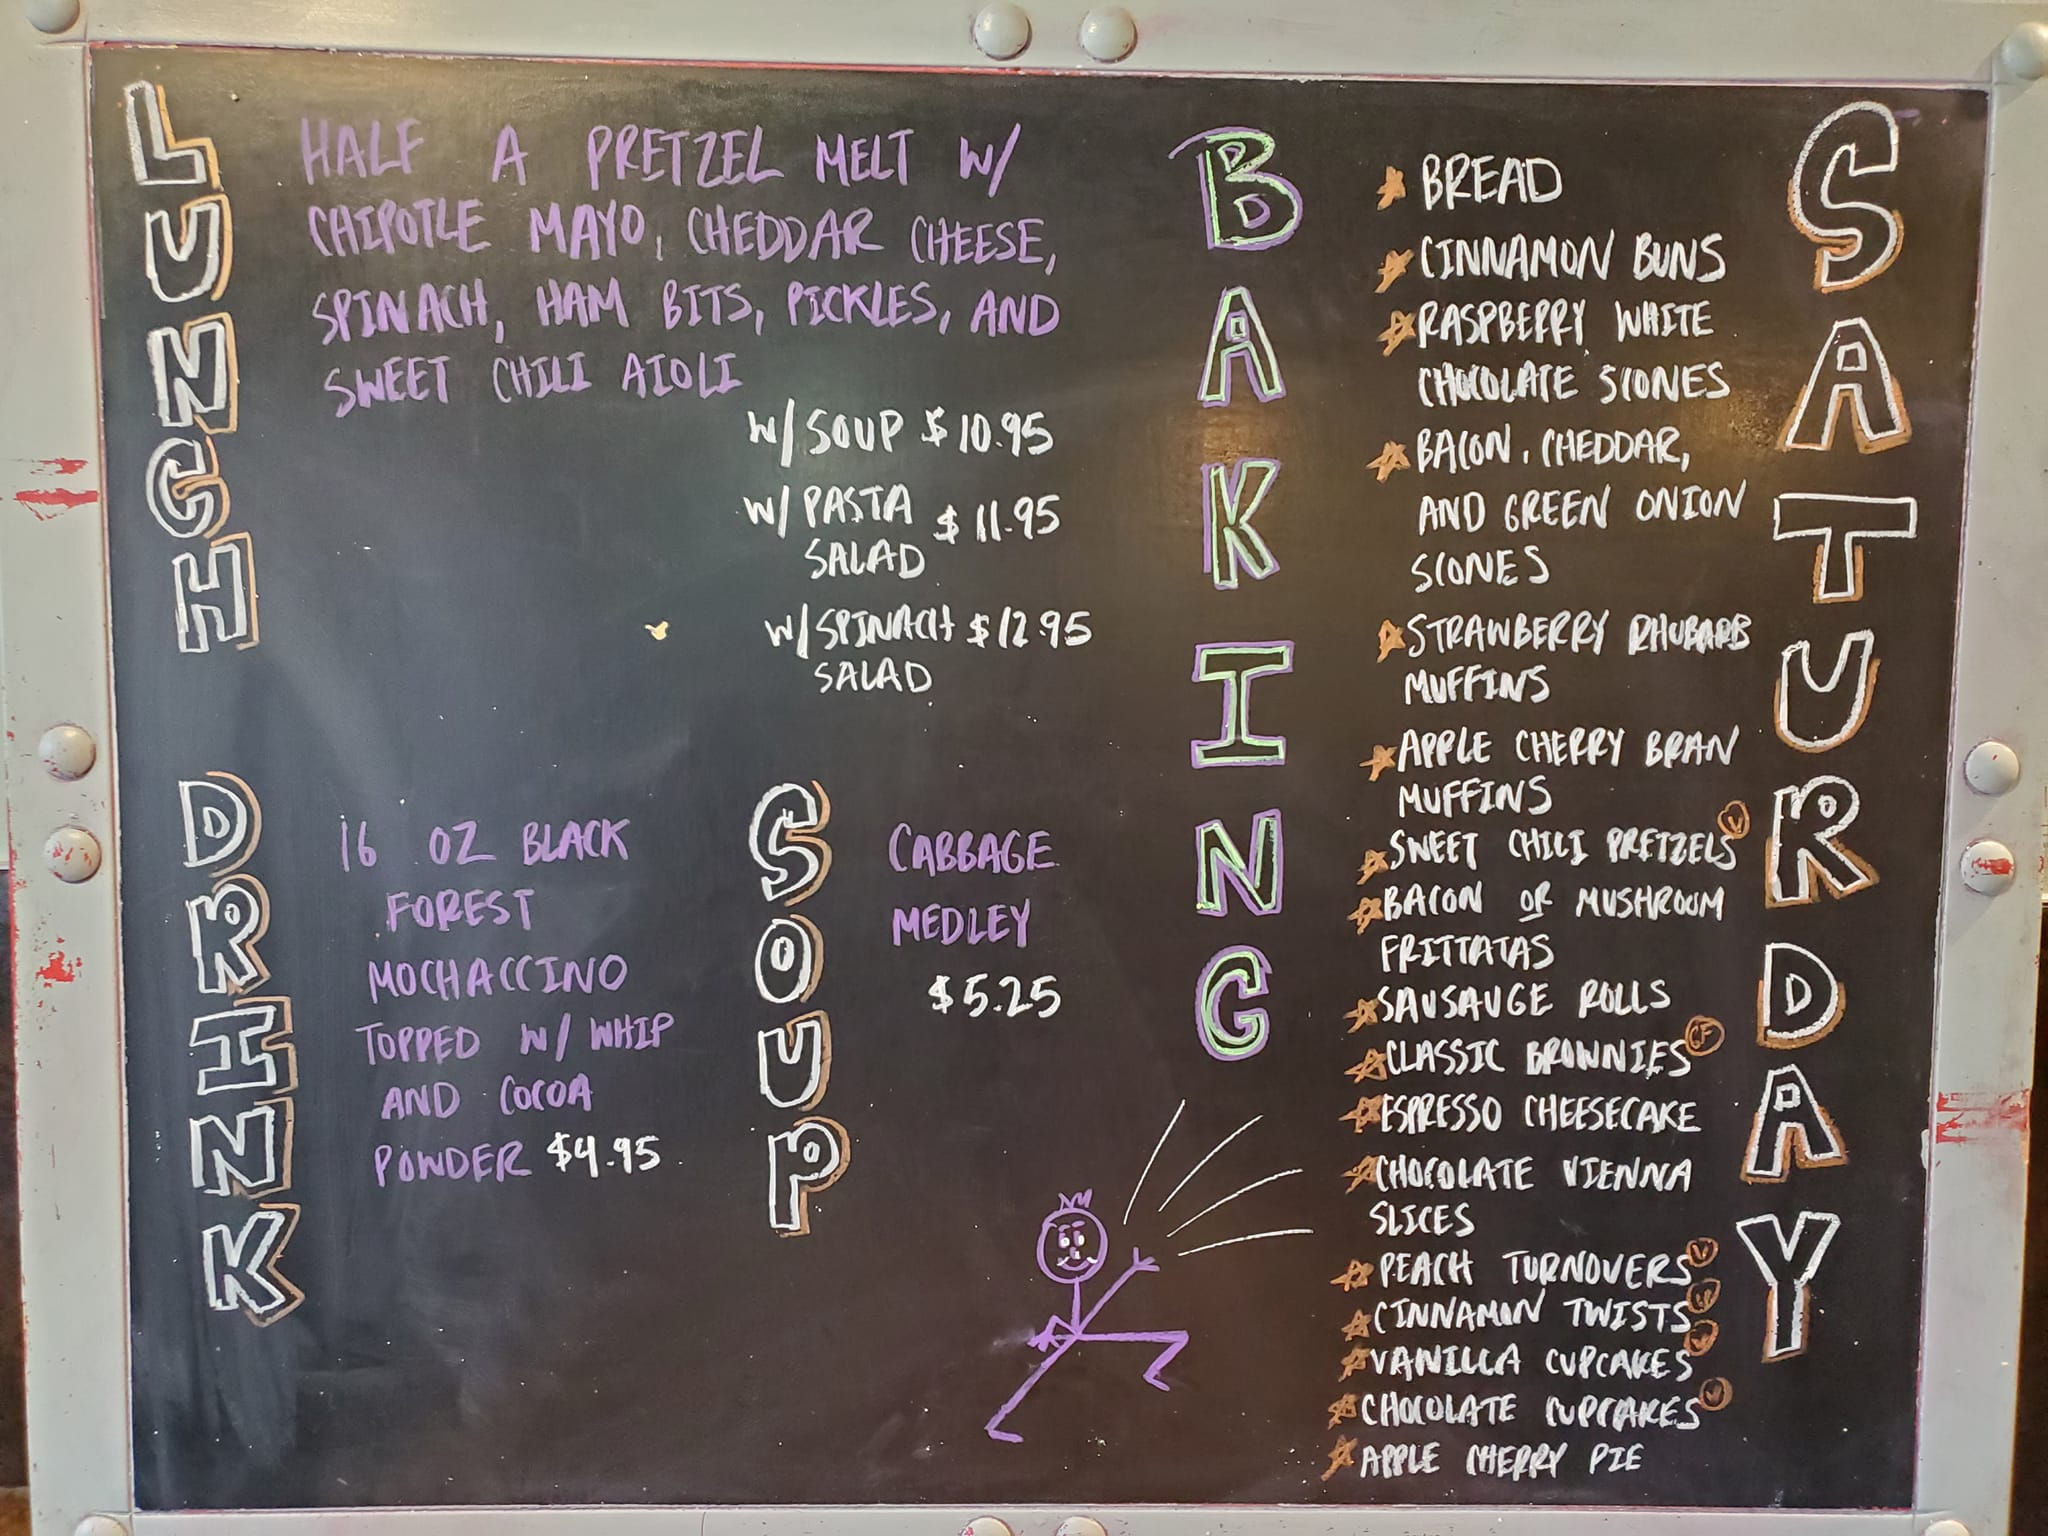 LUNCH
HALF A PRETZEL MELT W/
CHIPOTLE MAYO, CHEDDAR CHEESE,
SPINACH, HAM BITS, PICKLES, AND
SWEET CHILI AIOLI
W/ SOUP $10.95
W/ PASTA $11.95
SALAD
W/ SPINACH $12.95
SALAD
DRINK
16 OZ BLACK
FOREST
MOCHACCINO
TOPPED W/ WHIP
AND COCOA
POWDER $4.95
SOUP
CABBAGE
MEDLEY
$5.25
BAKING
BREAD
CINNAMON BUNS
RASPBERRY WHITE
CHOCOLATE SCONES
BACON, CHEDDAR,
AND GREEN ONION
SCONES
STRAWBERRY RHUBARB
MUFFINS
APPLE CHERRY BRAN
MUFFINS
SWEET CHILI PRETZELS V
BACON OR MUSHROOM
FRITTATAS
SAUSAUGE ROLLS
CLASSIC BROWNIES GF
ESPRESSO CHEESECAKE
CHOCOLATE VIENNA
SLICES
PEACH TURNOVERS V
CINNAMON TWISTS
VANILLA CUPCAKES V
CHOCOLATE CUPCAKES V
APPLE CHERRY PIE
SATURDAY